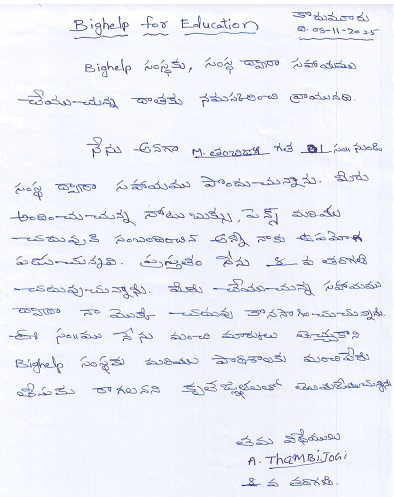 Bighelp for Education
కొడుమూరు
ది. 05-11-2025
Bighelp సంస్థకు, సంస్థ ద్వారా సహాయము
చేయుచున్న దాతకు నమస్కరించి వ్రాయునది.
నేను అనగా M. తంబిజోగి గత 01 సం॥ నుండి
సంస్థ ద్వారా సహాయము పొందుచున్నాను. మీరు
అందించుచున్న నోటు బుక్సు, పెన్స్ మరియు
చదువుకి సంబంధించిన అన్ని నాకు ఉపయోగ
పడుచున్నవి. ప్రస్తుతం నేను 8 వ తరగతి
చదువుచున్నాను. మీరు చేయుచున్న సహాయము
ద్వారా నా యొక్క చదువు కొనసాగించుచున్నాను.
ఈ సం॥ము నేను మంచి మార్కులు తెచ్చుకొని
Bighelp సంస్థకు మరియు పాఠశాలకు మంచిపేరు
తీసుకు రాగలనని కృతజ్ఞతలతో తెలుపుచున్నాను
తమ విధేయులు
A. ThaMBiJOGi
8 వ తరగతి.